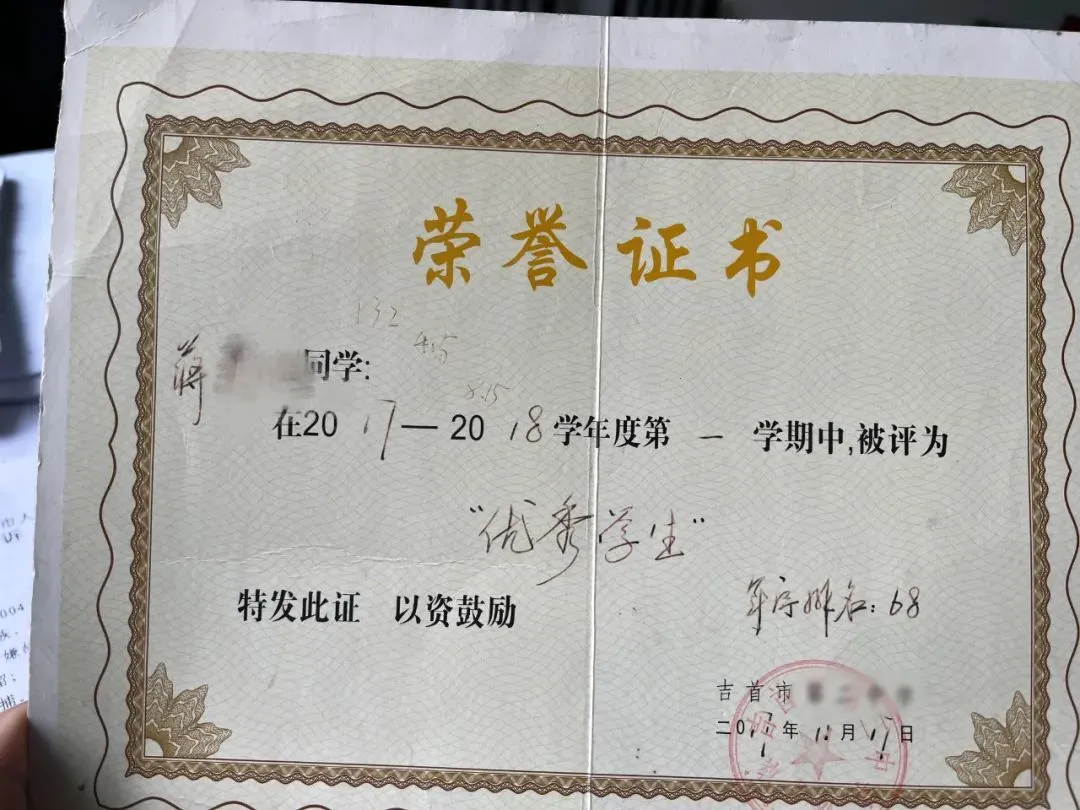 荣誉证书
132
蒋
同学:
8.15
在2017—2018学年度第一学期中,被评为
"优秀学生"
特发此证 以资鼓励
年序排名:68
吉首市
二017年11月17日
004